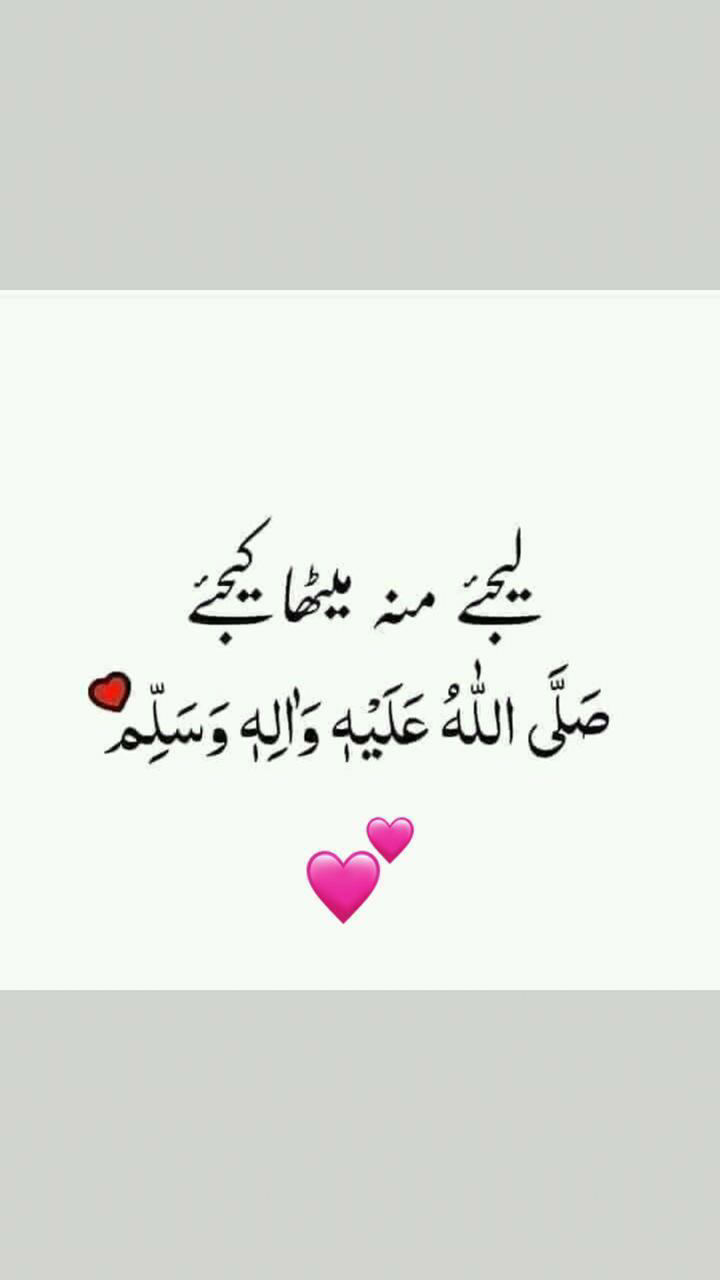 لیجئے منہ میٹھا کیجئے
صَلَّی اللّٰهُ عَلَیْهِٖ وَاٰلِهٖ وَسَلِّم